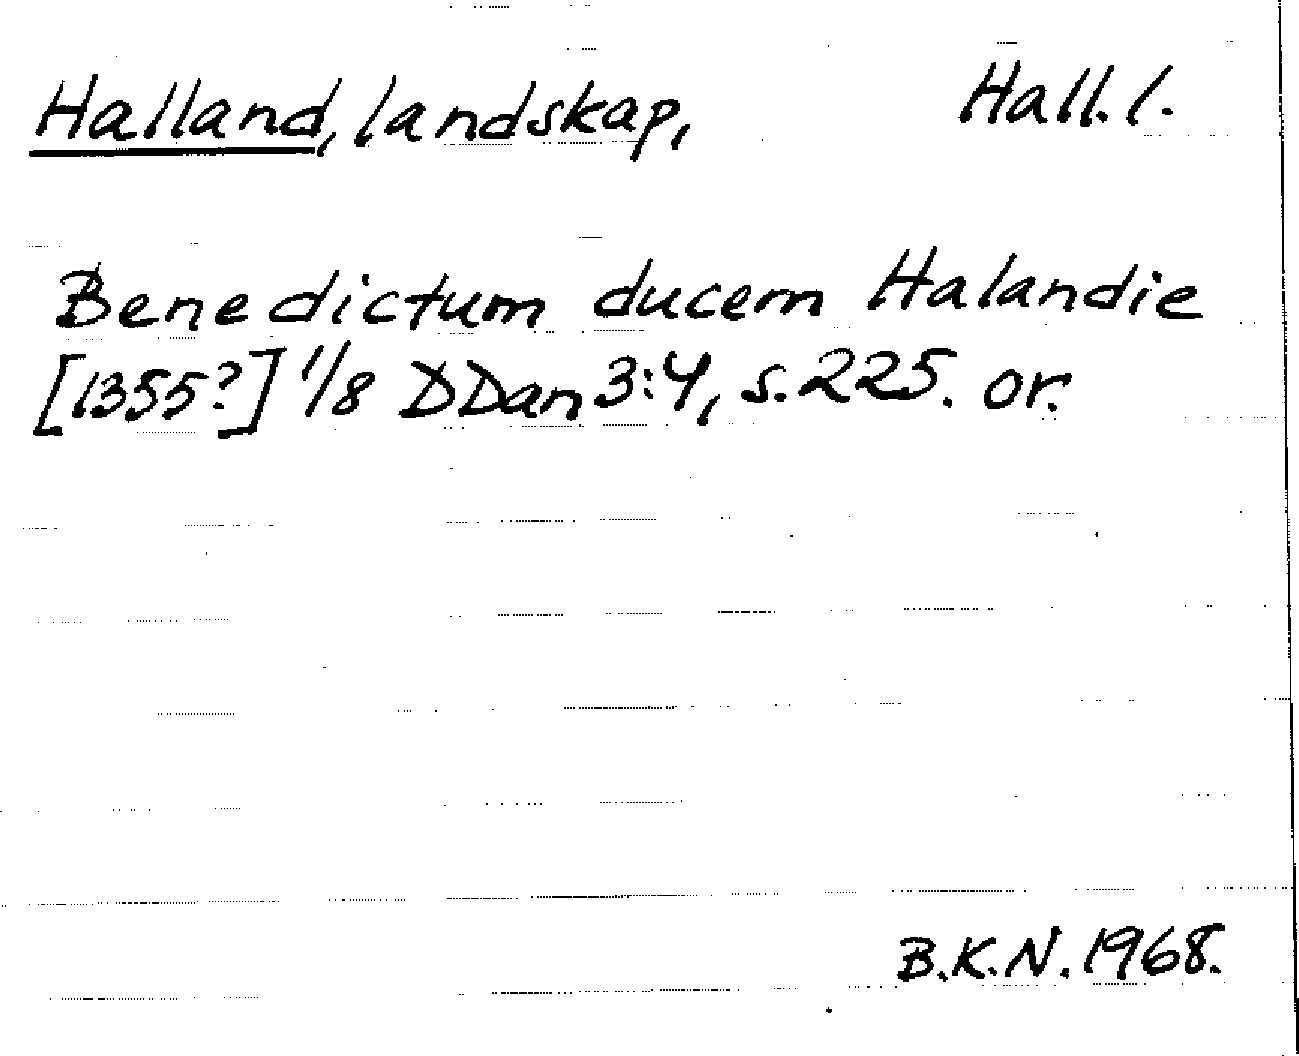 Halland, landskap, Hall. l.
Benedictum ducem Halandie
[1355?] 1/8 DDan 3:4, s. 225. or.
B.K.N. 1968.